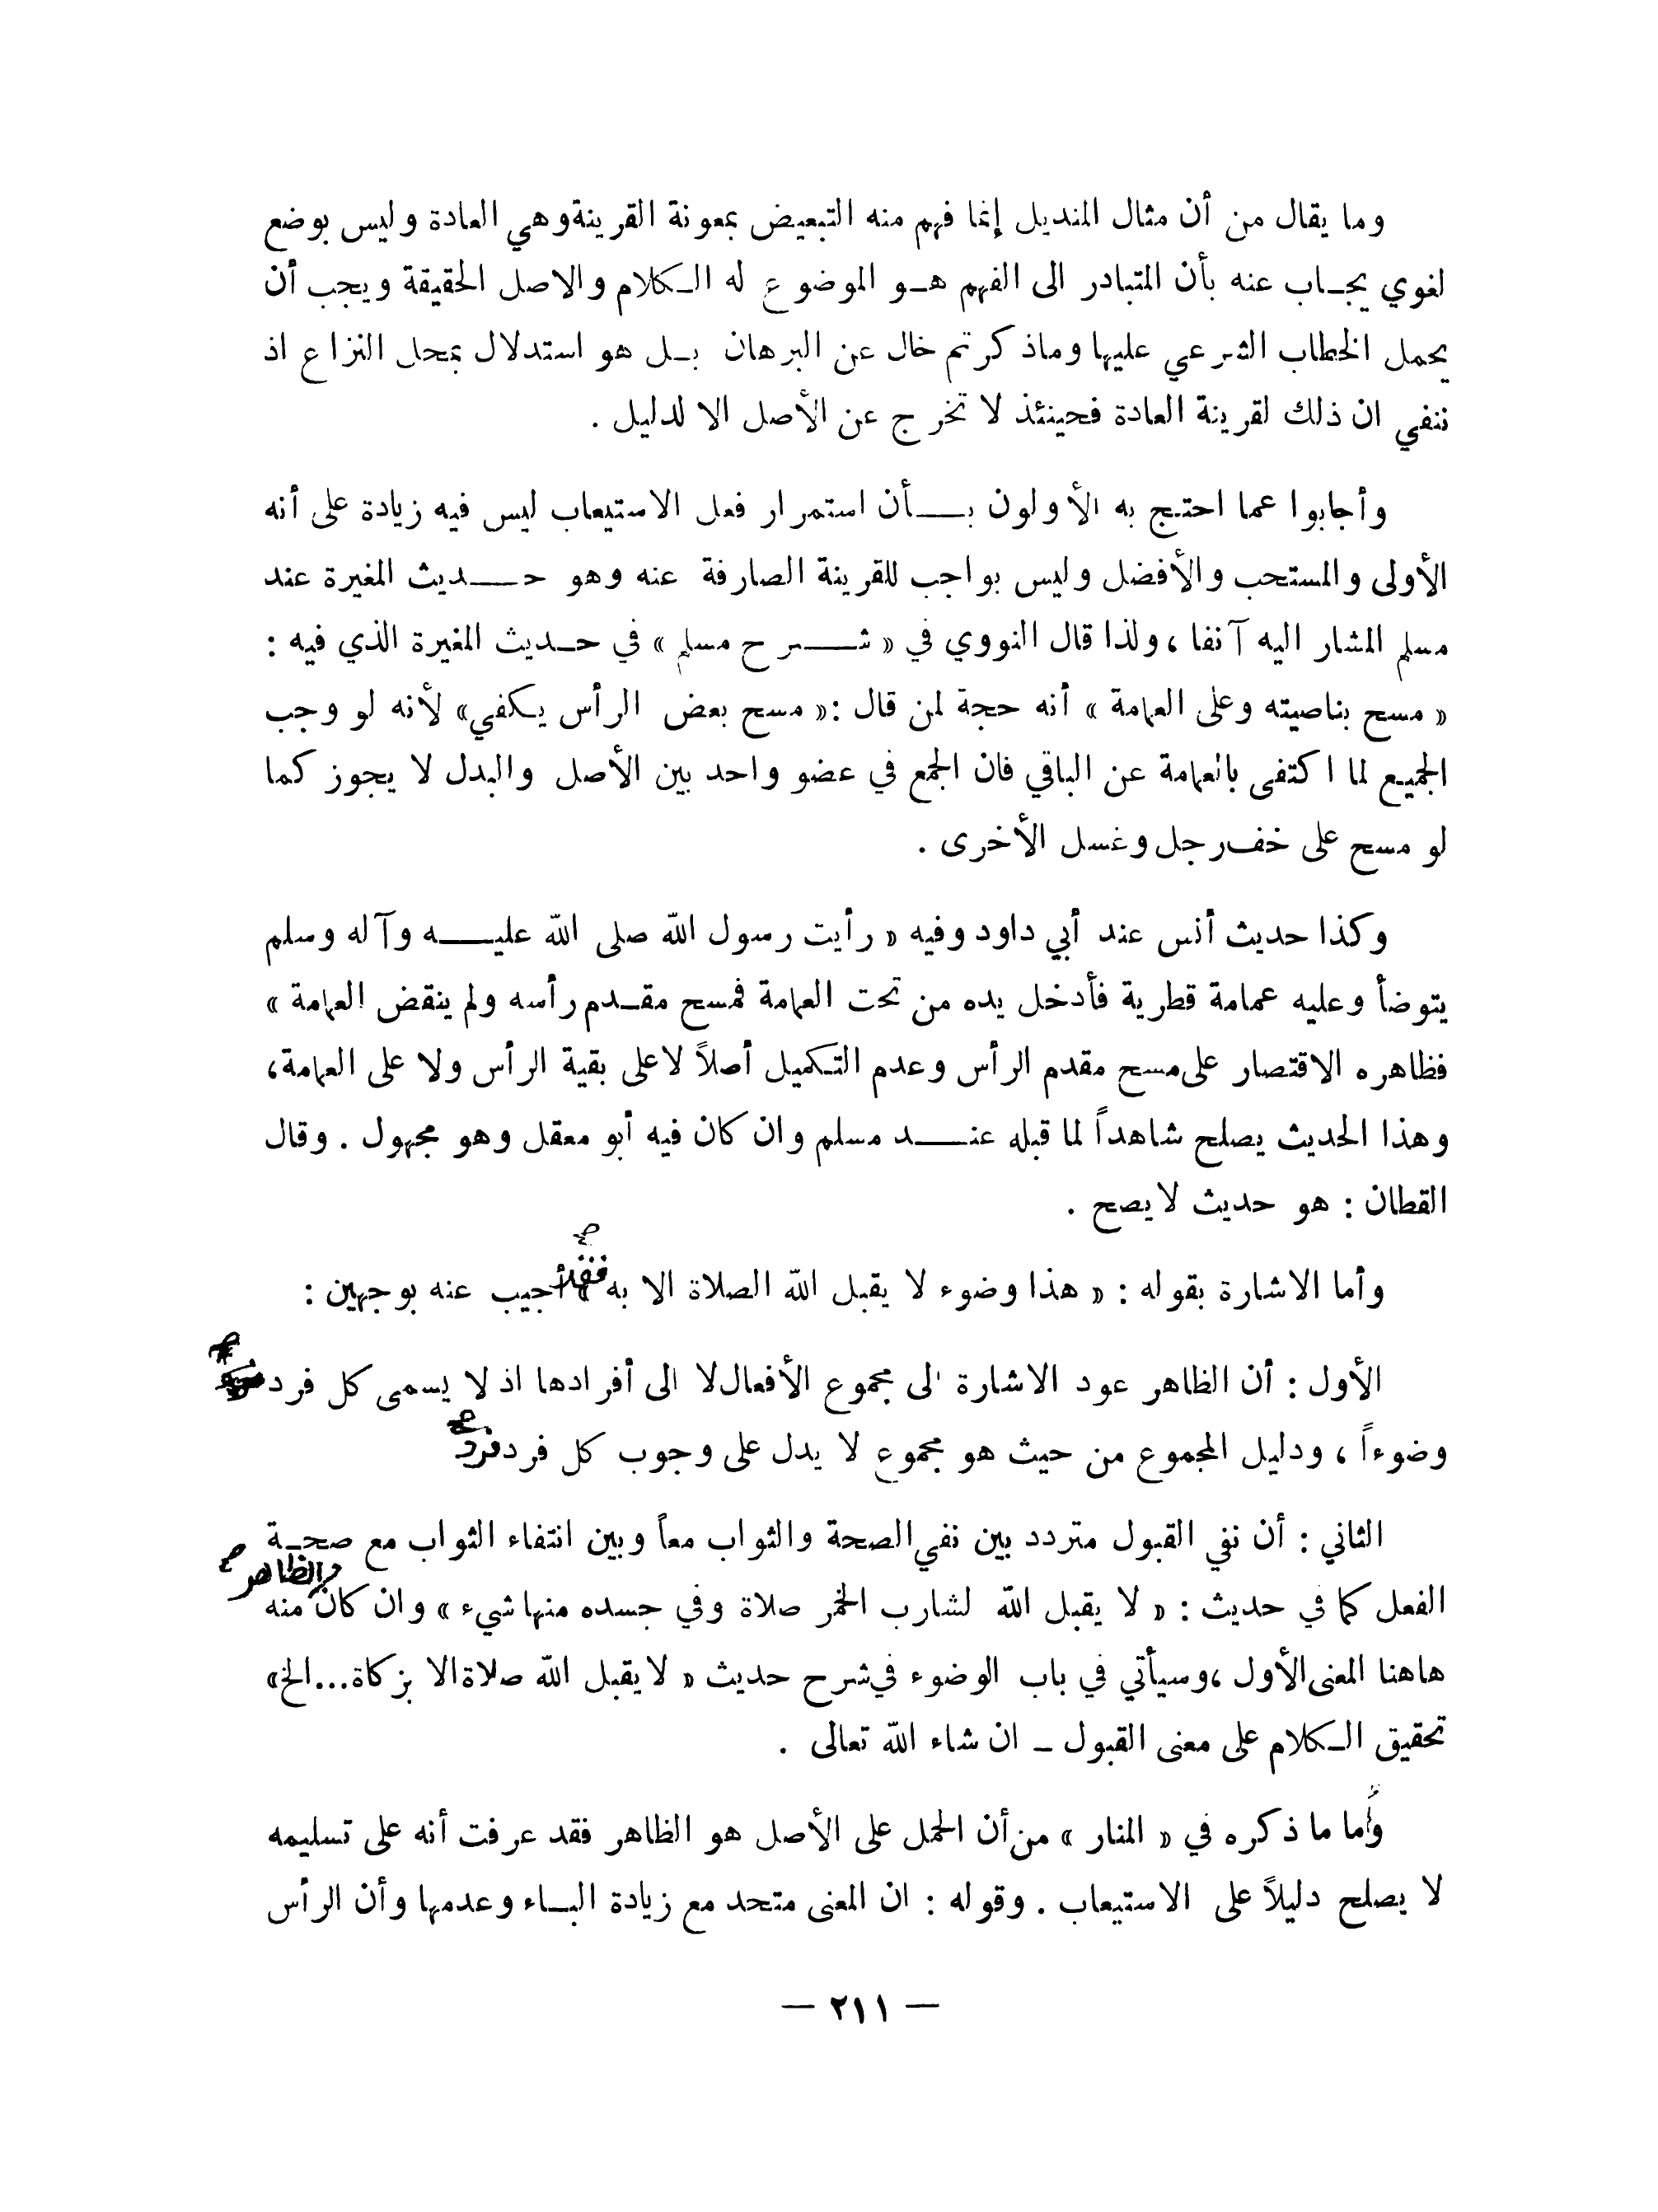 وما يقال من أن مثال المنديل إنما فهم منه التبعيض بمعونة القرينة وهي العادة وليس بوضع
لغوي يجاب عنه بأن المتبادر الى الفهم هو الموضوع له الكلام والاصل الحقيقة ويجب أن
يحمل الخطاب الشرعي عليها وماذكرتم خال عن البرهان بل هو استدلال بمحل النزاع اذ
ننفي ان ذلك لقرينة العادة فحينئذ لا تخرج عن الأصل الا لدليل .
وأجابوا عما احتج به الأولون بأن استمرار فعل الاستيعاب ليس فيه زيادة على أنه
الأولى والمستحب والأفضل وليس بواجب للقرينة الصارفة عنه وهو حديث المغيرة عند
مسلم المشار اليه آنفا ، ولذا قال النووي في « شرح مسلم » في حديث المغيرة الذي فيه :
« مسح بناصيته وعلى العمامة » أنه حجة لمن قال : « مسح بعض الرأس يكفي» لأنه لو وجب
الجميع لما اكتفى بالعمامة عن الباقي فان الجمع في عضو واحد بين الأصل والبدل لا يجوز كما
لو مسح على خف رجل وغسل الأخرى .
وكذا حديث أنس عند أبي داود وفيه « رأيت رسول الله صلى الله عليه وآله وسلم
يتوضأ وعليه عمامة قطرية فأدخل يده من تحت العمامة فمسح مقدم رأسه ولم ينقض العمامة »
فظاهره الاقتصار على مسح مقدم الرأس وعدم التكميل أصلاً لا على بقية الرأس ولا على العمامة،
وهذا الحديث يصلح شاهداً لما قبله عند مسلم وان كان فيه أبو معقل وهو مجهول . وقال
القطان : هو حديث لا يصح .
وأما الاشارة بقوله : « هذا وضوء لا يقبل الله الصلاة الا به » فقد أجيب عنه بوجهين :
الأول : أن الظاهر عود الاشارة الى مجموع الأفعال لا الى أفرادها اذ لا يسمى كل فرد
وضوءاً ، ودليل المجموع من حيث هو مجموع لا يدل على وجوب كل فرد فرد
الثاني : أن نفي القبول متردد بين نفي الصحة والثواب معاً وبين انتفاء الثواب مع صحة
الفعل كما في حديث : « لا يقبل الله لشارب الخمر صلاة وفي جسده منها شيء » وان كان الظاهر منه
هاهنا المعنى الأول ، وسيأتي في باب الوضوء في شرح حديث « لا يقبل الله صلاة الا بزكاة...الخ»
تحقيق الكلام على معنى القبول – ان شاء الله تعالى .
وأما ما ذكره في « المنار » من أن الحمل على الأصل هو الظاهر فقد عرفت أنه على تسليمه
لا يصلح دليلاً على الاستيعاب . وقوله : ان المعنى متحد مع زيادة الباء وعدمها وأن الرأس
— ٢١١ —